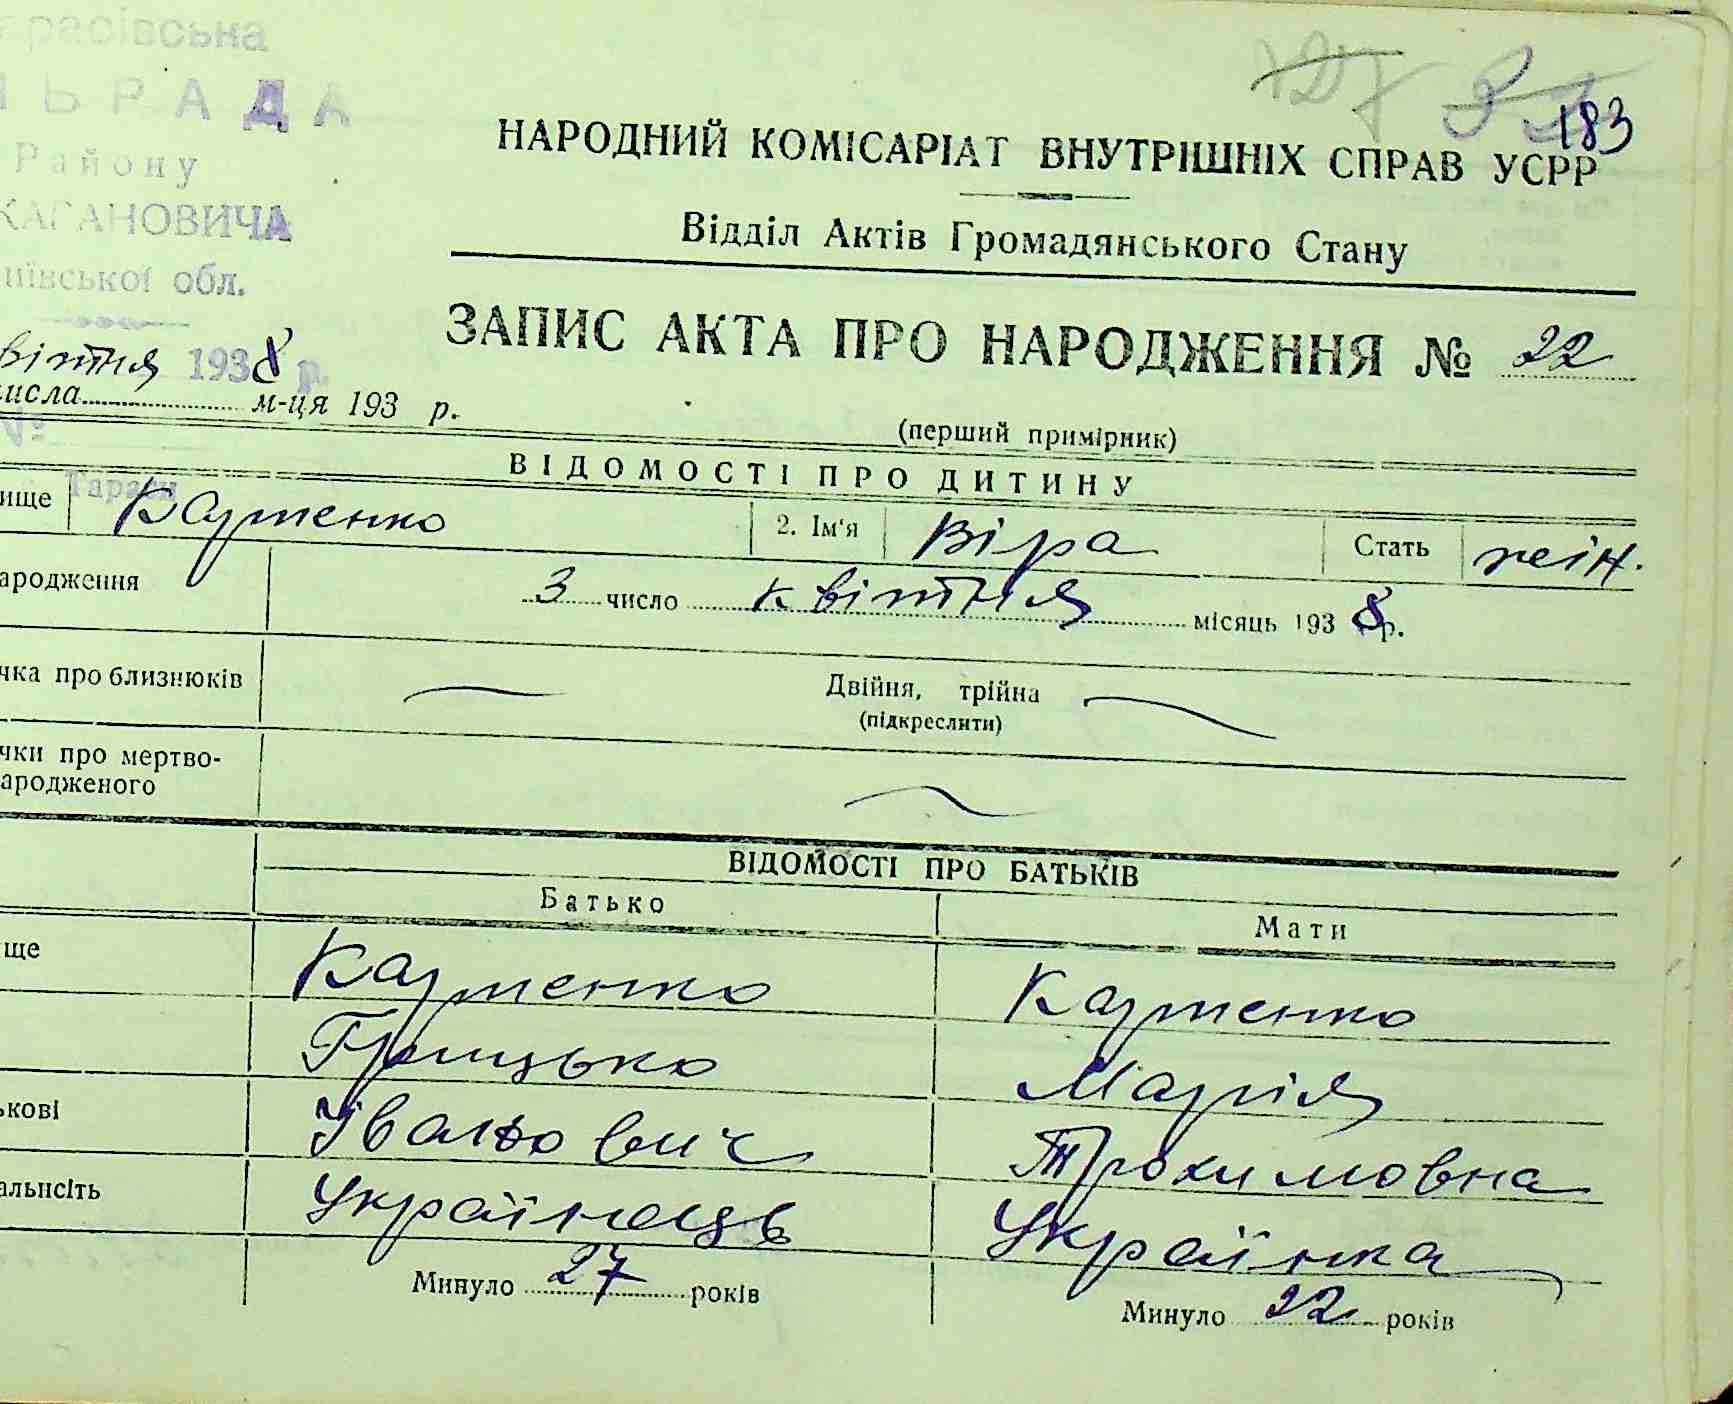 расівська
ЛЬРАДА
Району
КАГАНОВИЧА
ївської обл.
127
183
НАРОДНИЙ КОМІСАРІАТ ВНУТРІШНІХ СПРАВ УСРР
Відділ Актів Громадянського Стану
ЗАПИС АКТА ПРО НАРОДЖЕННЯ № 22
вітня 1938 р.
числа м-ця 193 р.
(перший примірник)
№
ВІДОМОСТІ ПРО ДИТИНУ
Тараси
ище Карпенко 2. Ім'я Віра Стать жін.
ародження 3 число квітня місяць 1938 р.
чка про близнюків Двійня, трійна
(підкреслити)
чки про мертво-
ародженого
ВІДОМОСТІ ПРО БАТЬКІВ
Батько Мати
ще Карпенко Карпенко
Грицько Марія
ькові Іванович Трохимовна
альнсіть Українець Українка
Минуло 27 років Минуло 22 років